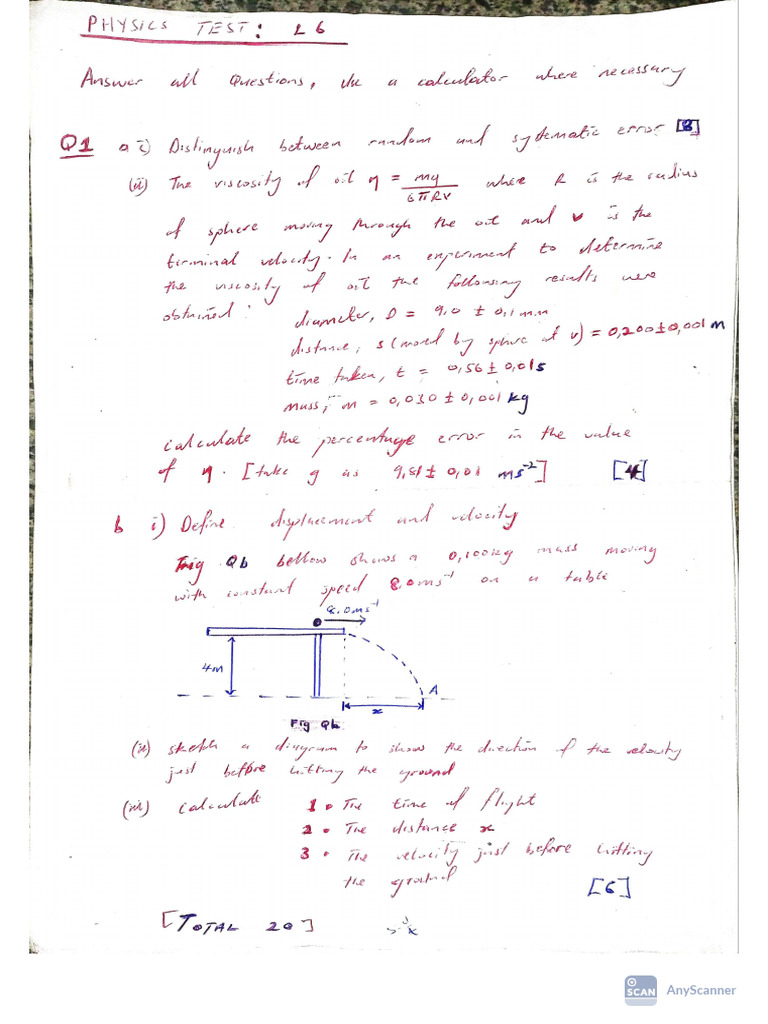 PHYSICS TEST: L6
Answer all Questions, Use a calculator where necessary
Q1 a i) Distinguish between random and systematic error [3]
(ii) The viscosity of oil η = mg / 6πRv where R is the radius
of sphere moving through the oil and v is the
terminal velocity. In an experiment to determine
the viscosity of oil the following results were
obtained:
diameter, D = 9,0 ± 0,1 mm
distance, s (moved by sphere at v) = 0,200 ± 0,001 m
time taken, t = 0,56 ± 0,01s
mass, m = 0,030 ± 0,001 kg
Calculate the percentage error in the value
of η. [take g as 9,81 ± 0,01 ms⁻²] [4]
b i) Define displacement and velocity
Fig Qb bellow shows a 0,100kg mass moving
with constant speed 8,0ms⁻¹ on a table
8,0ms⁻¹
4m
A
x
Fig Qb
(ii) sketch a diagram to show the direction of the velocity
just before hitting the ground
(iii) Calculate 1. The time of flight
2. The distance x
3. The velocity just before hitting
the ground [6]
[TOTAL 20]
SCAN AnyScanner